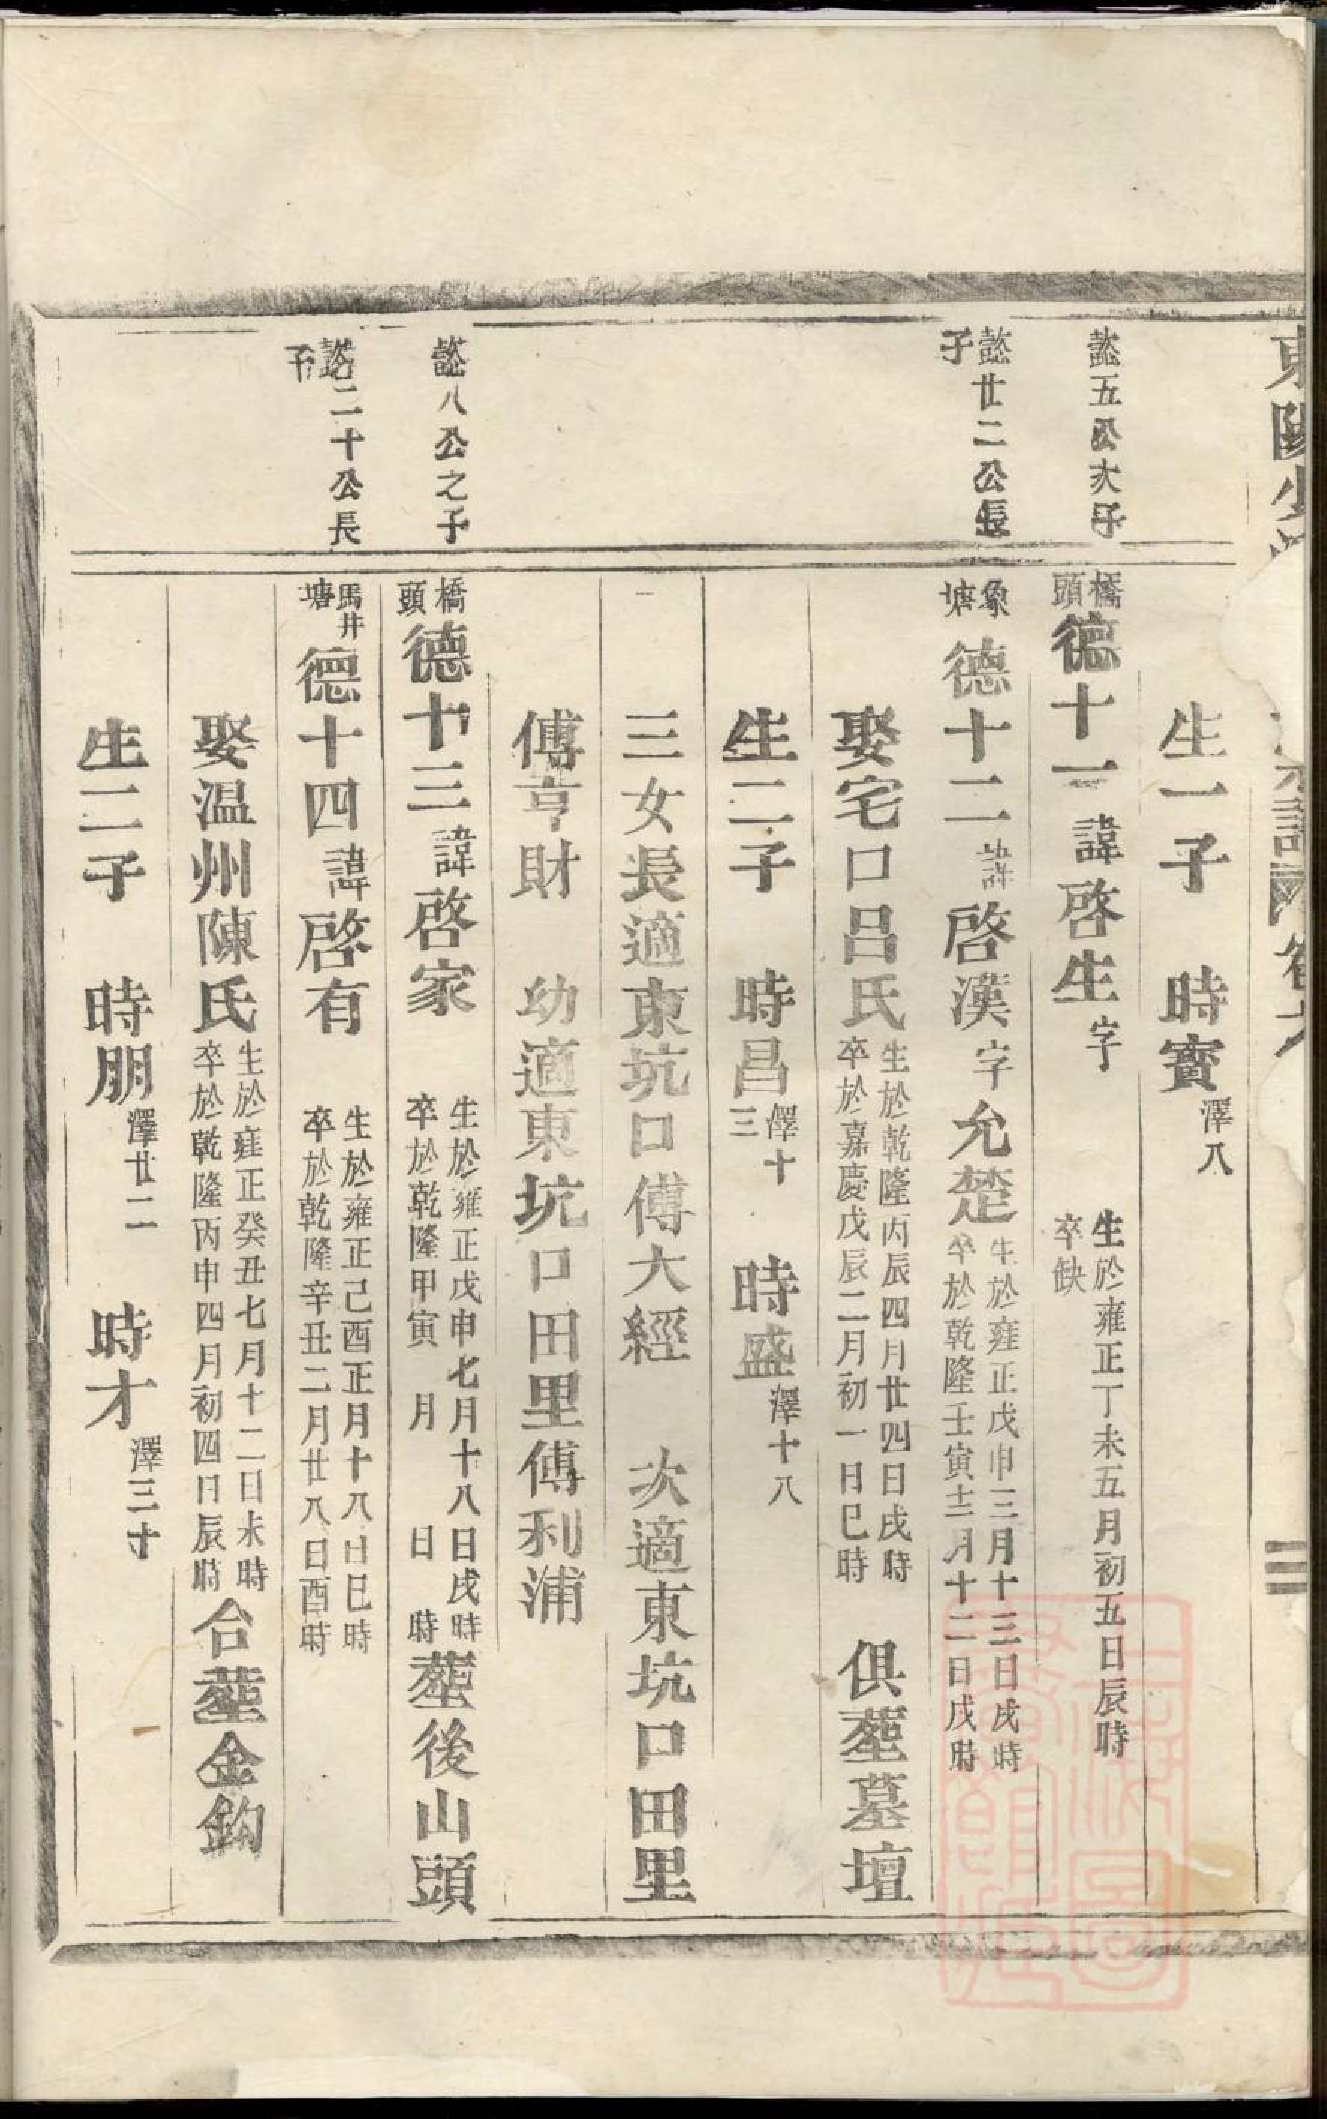 生一子　時寶澤八
懿五公次子
橋頭德十一諱啓生字　生於雍正丁未五月初五日辰時
卒缺
懿廿二公長子
象塘德十二諱啓漢字允楚生於雍正戊申三月十三日戌時
卒於乾隆壬寅十二月十二日戌時
娶宅口呂氏生於乾隆丙辰四月廿四日戌時
卒於嘉慶戊辰二月初一日巳時　俱塟墓壇
生二子　時昌澤十三　時盛澤十八
三女長適東坑口傅大經　次適東坑口田里
傅亨財　幼適東坑口田里傅利浦
懿八公之子
橋頭德十三諱啓家　生於雍正戊申七月十八日戌時
卒於乾隆甲寅　月　日　時塟後山頭
懿二十公長子
馬井塘德十四諱啓有　生於雍正己酉正月十八日巳時
卒於乾隆辛丑二月廿八日酉時
娶温州陳氏生於雍正癸丑七月十二日未時
卒於乾隆丙申四月初四日辰時合塟金鈎
生二子　時朋澤廿二　時才澤三十